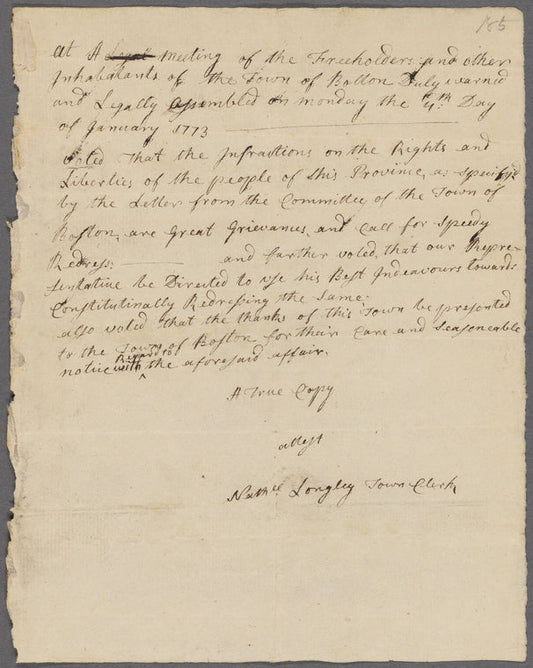 185
at A Legall meeting of the Freeholders and other
Inhabatants of the Town of Bolton Duly warned
and Legally Assembled on monday the 4th Day
of January 1773
Voted That the Infractions on the Rights and
Liberties of the people of this Province, as specifyd
by the Letter from the Committee of the Town of
Boston, are Great Grievances, and Call for Speedy
Redress: and further voted, that our Repre-
sentative be Directed to use his Best Indeavours towards
Constitutinally Redressing the Same:
also voted that the thanks of this Town be presented
to the Town of Boston for thair Care and Seasoneable
notice with Regard to the aforesaid affair.
A True Copy
attest
Nathll Longley Town Clerk